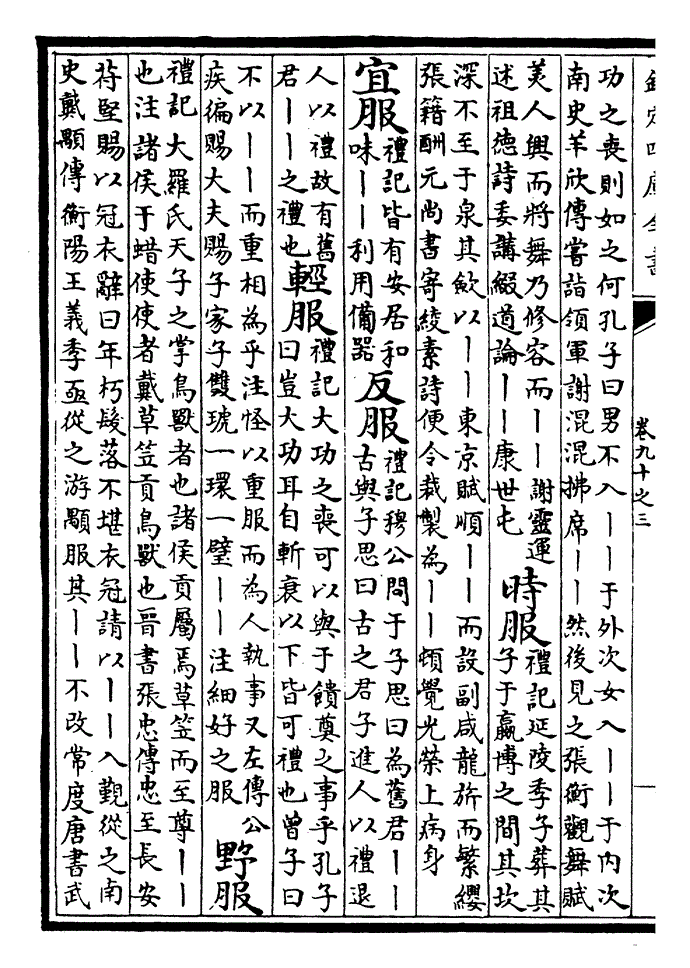 欽定四庫全書
卷九十之三
功之喪則如之何孔子曰男不入丨丨于外次女入丨丨于內次
南史羊欣傳嘗詣領軍謝混混拂席丨丨然後見之張衡觀舞賦
美人興而將舞乃修容而丨丨謝靈運
述祖德詩委講綴道論丨丨康世屯
時服
禮記延陵季子葬其
子于嬴博之間其坎
深不至于泉其斂以丨丨東京賦順丨丨而設副咸龍旂而繁纓
張籍酬元尚書寄綾素詩便令裁製為丨丨頓覺光榮上病身
宜服
禮記皆有安居和
味丨丨利用備器
反服
禮記穆公問于子思曰為舊君丨丨
古與子思曰古之君子進人以禮退
人以禮故有舊
君丨丨之禮也
輕服
禮記大功之喪可以與于饋奠之事乎孔子
曰豈大功耳自斬衰以下皆可禮也曾子曰
不以丨丨而重相為乎注怪以重服而為人執事又左傳公
疾徧賜大夫賜子家子雙琥一環一璧丨丨注細好之服
野服
禮記大羅氏天子之掌鳥獸者也諸侯貢屬焉草笠而至尊丨丨
也注諸侯于蜡使使者戴草笠貢鳥獸也晉書張忠傳忠至長安
苻堅賜以冠衣辭曰年朽髮落不堪衣冠請以丨丨入覲從之南
史戴顒傳衡陽王義季亟從之游顒服其丨丨不改常度唐書武